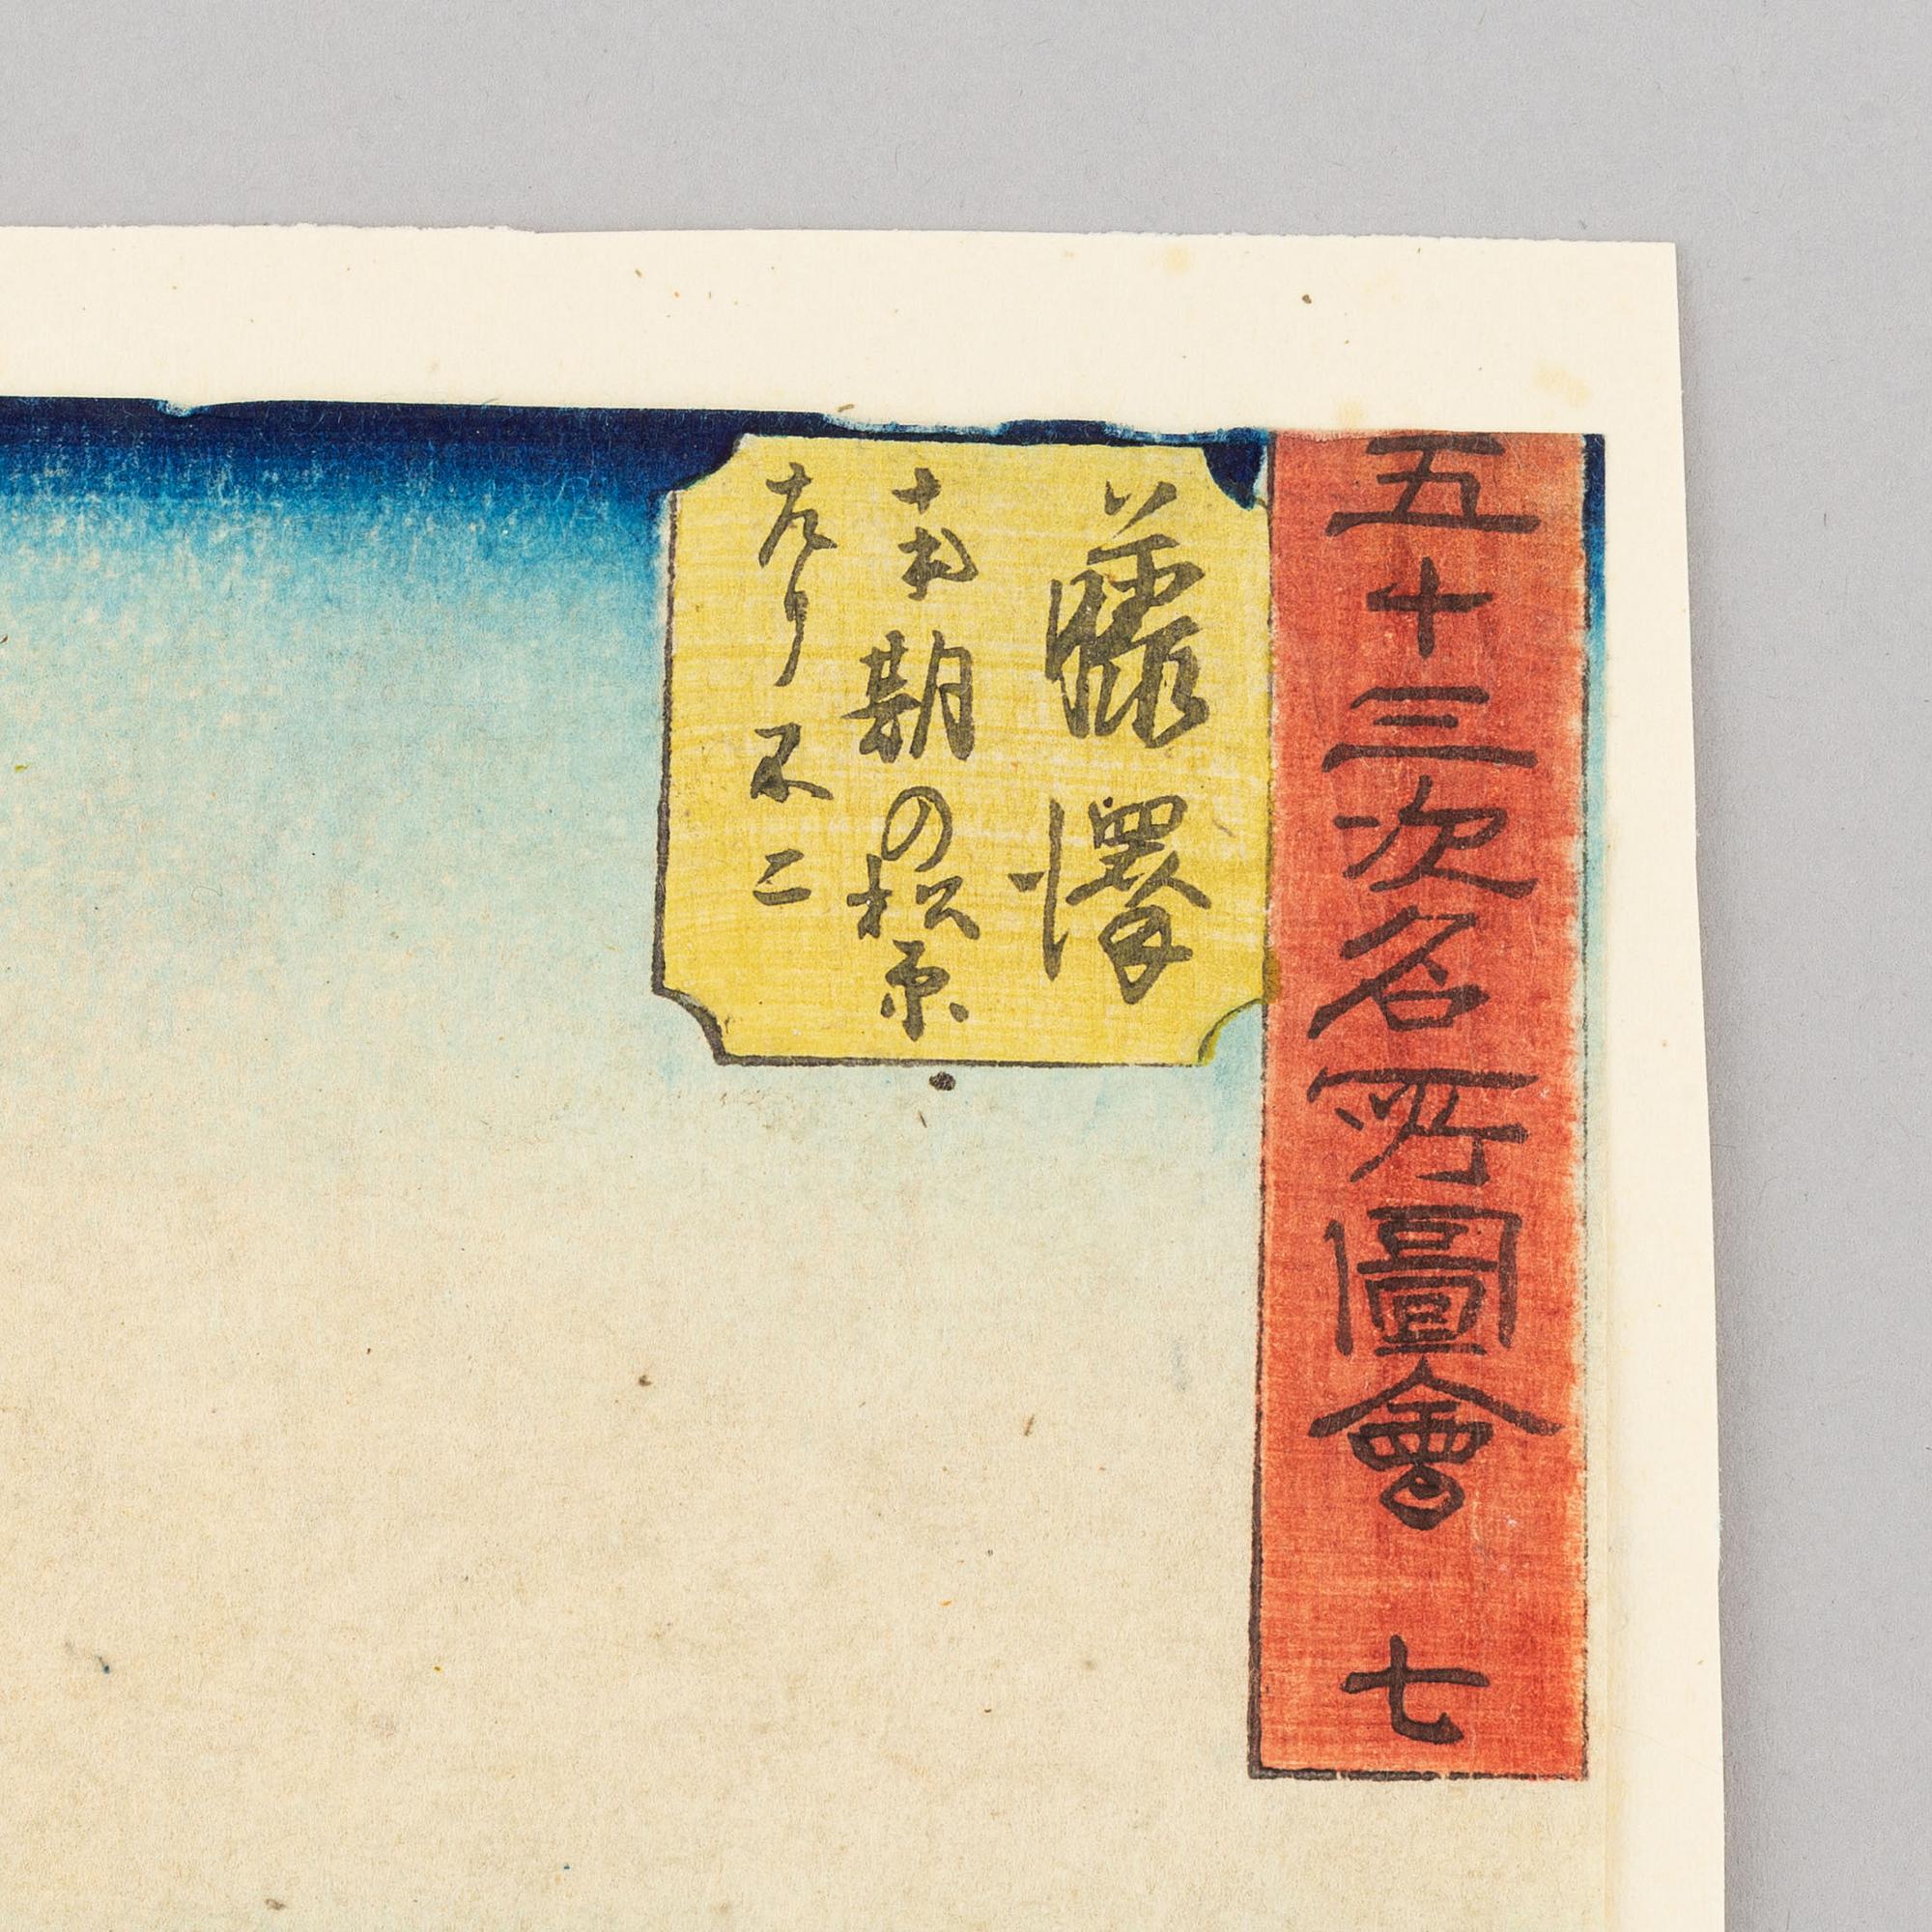 五十三次名所圖會 七
藤澤
南期の松原
左り不二